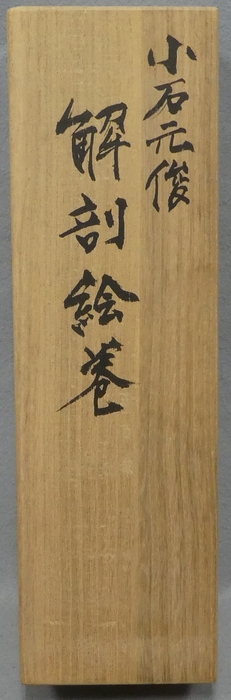 小石元俊
解剖絵巻